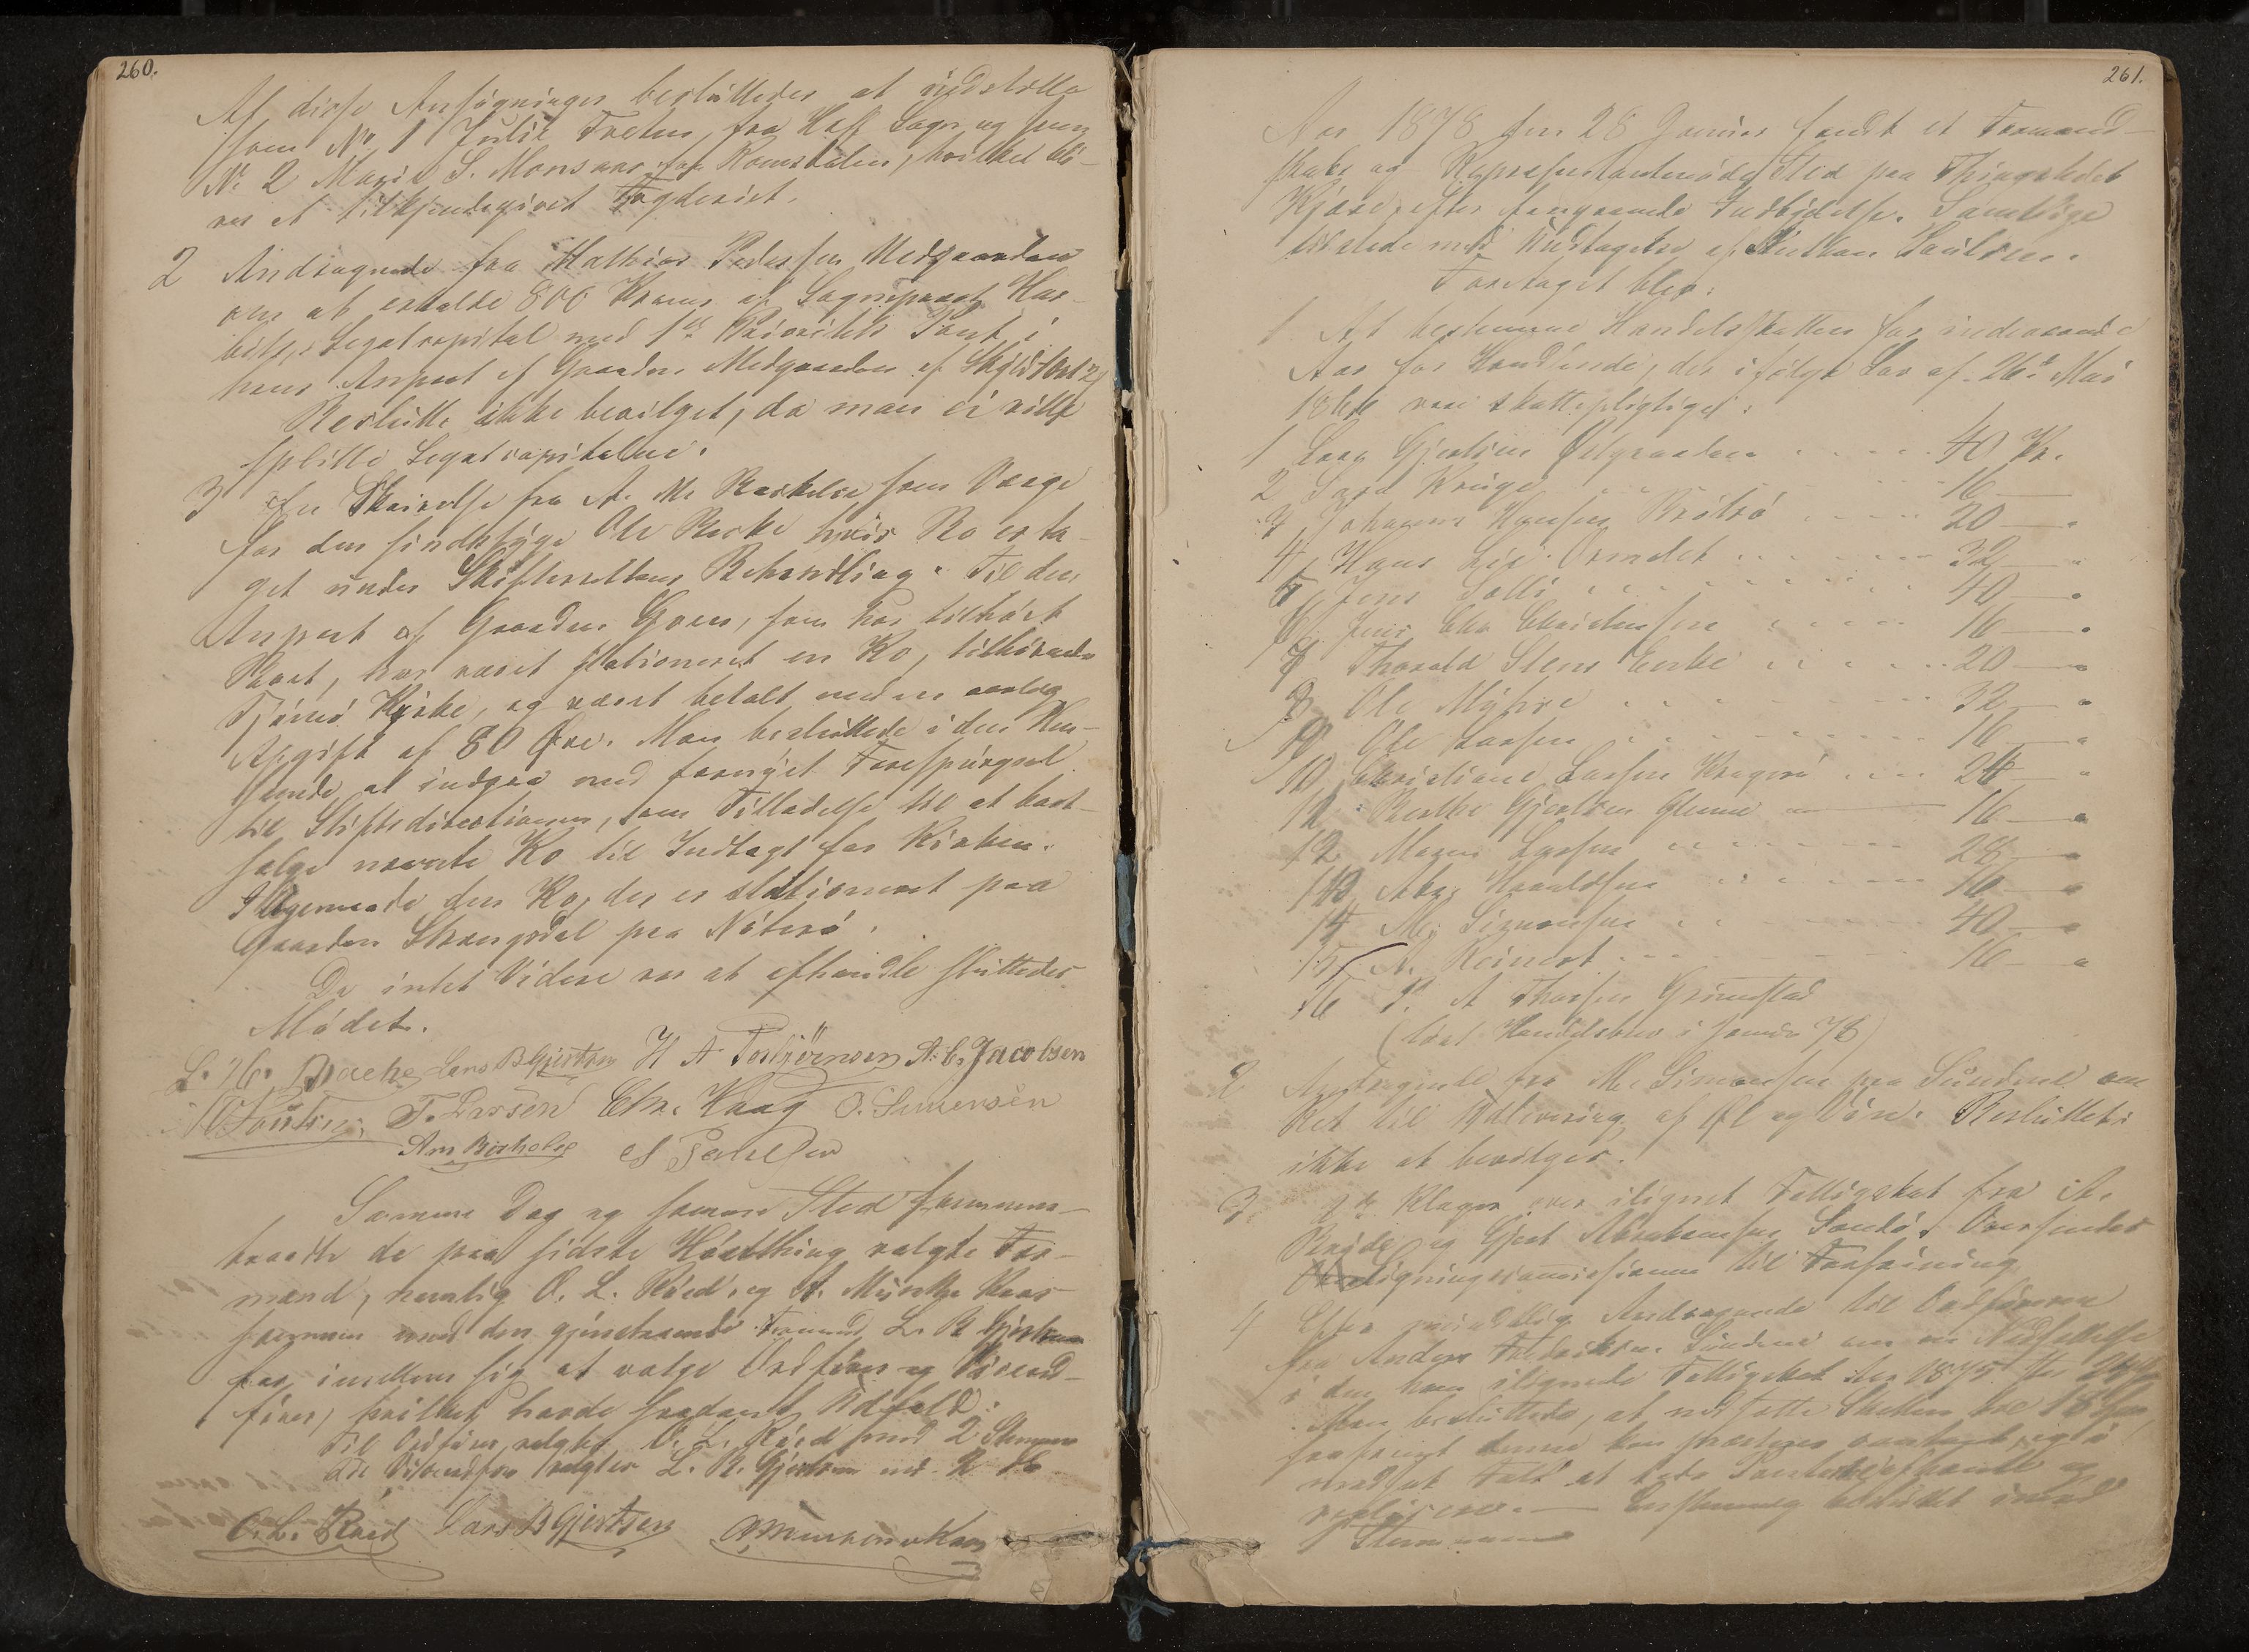 260.
Af disse Ansøgninger besluttedes at indstille
som No 1 Julie Tveten, fra Hof Sogn og som
No 2 Marie S. Monsaas fra Romsdalen, hvilket bli-
ver at tilkjendegivet Fogderiet.
2 Andragende fra Mathias Pedersen Medgaarden
om at erholde 800 Kroner af Sogneprest
Legatcapital med 1ste Prioritets Pant i
hans Anpart af Gaarden Medgaarden af Skyld
Beslutte ikke bevilget, da man ei vilde
splitte Legatcapitalene.
3 En Skrivelse fra A. M. Berkelse som Værge
for den sindssyge Ole hvis Bo er ta-
get under Skifterettens Behandling. Til den
Anpart af Gaarden Goen, som har tilhørt
Boet, har været stationeret en Ko, tilhørende
Tjømø Kirke, og været betalt med en aarlig
Afgift af 80 Øre. Man besluttede i den Hen-
seende at indgaa med fornyet Forespørgsel
til Stiftsdirectionen, om Tilladelse til at bort-
sælge nævnte Ko til Indtægt for Kirken.
Ligemaade den Ko, der er stationeret paa
Gaarden Strengsdal paa Nøterø.
Da intet Videre var at afhandle sluttedes
Mødet.
L. H. Bache Lars B Gjertsen H A Torbjörnsen A. C. Jacobsen
T. Larsen Chr. Haag O. Simensen
Am Berkelse
Samme Dag og samme Sted sammen-
traadte de paa sidste Høstthing valgte For-
mænd, nemlig O. L. Røed og A. Munthe Kaas
sammen med den gjenstaaende Formand L. B. Gjertsen
for imellem sig at vælge Ordfører og Viceord-
fører, hvilket havde saadant Udfald:
Til Ordfører valgtes O. L. Røed med 2 Stemmer
Til Viceordfører valgtes L. B. Gjertsen med 2 St.
O. L. Røed Lars B Gjertsen A Munthe Kaas
261.
Aar 1878 den 28 Januar fandt et Formand-
skabs og Repræsentantmøde Sted paa Thingstedet
Kjære, efter foregaaende Indbydelse. Samtlige
tilstede med Undtagelse af Paulsen.
Foretaget blev:
1 At bestemme Handelsskatten for indeværende
Aar for Handlende, der ifølge Lov af 26de Mai
1866 vare skattepligtige:
1 Lars Gjertsen Ødegaarden 40 Kr.
2 Krüge 16 —
3 Johannes Hansen Brötsö 20 — "
4 Hans Lie Ormelet 32 — "
5 Jens Solli 40 — "
6 Jens Chr Christensen 16 — "
7 Thorvald Stens Eenke 20 — "
8 Ole Myhre 32 — "
9 Ole Larsen 16 — "
10 Christiane Larsen Kragerö 24 — "
11 Berthe Gjertsen Glenne 16 — "
12 Maren Larsen 28 — "
13 Abr. Haraldsen 16 — "
14 M. Simonsen 40 — "
15 A. Reinert 16 — "
16 P. A Thorsen Grimestad
(løst Handelsbrev i Januar 78)
2 Andragende fra M. Simonsen paa Sundene om
Ret til Udlevering af Øl og Vin. Besluttet
ikke at bevilges.
3 2de Klager over ilignet Fattigskat fra A.
og Gjert Abrahamsen Sandö. Oversendes
Ligningscommissionen til Forføining
4 Efter mundtlig Andragende til Ordføreren
fra Anders Fredriksen Sundene om en Nedsættelse
i den ham ilignede Fattigskat for 1875
Man besluttede, at nedsætte Skatten
saafremt denne kan
modsat Fald at lade
Eenstemmig
Stemmer